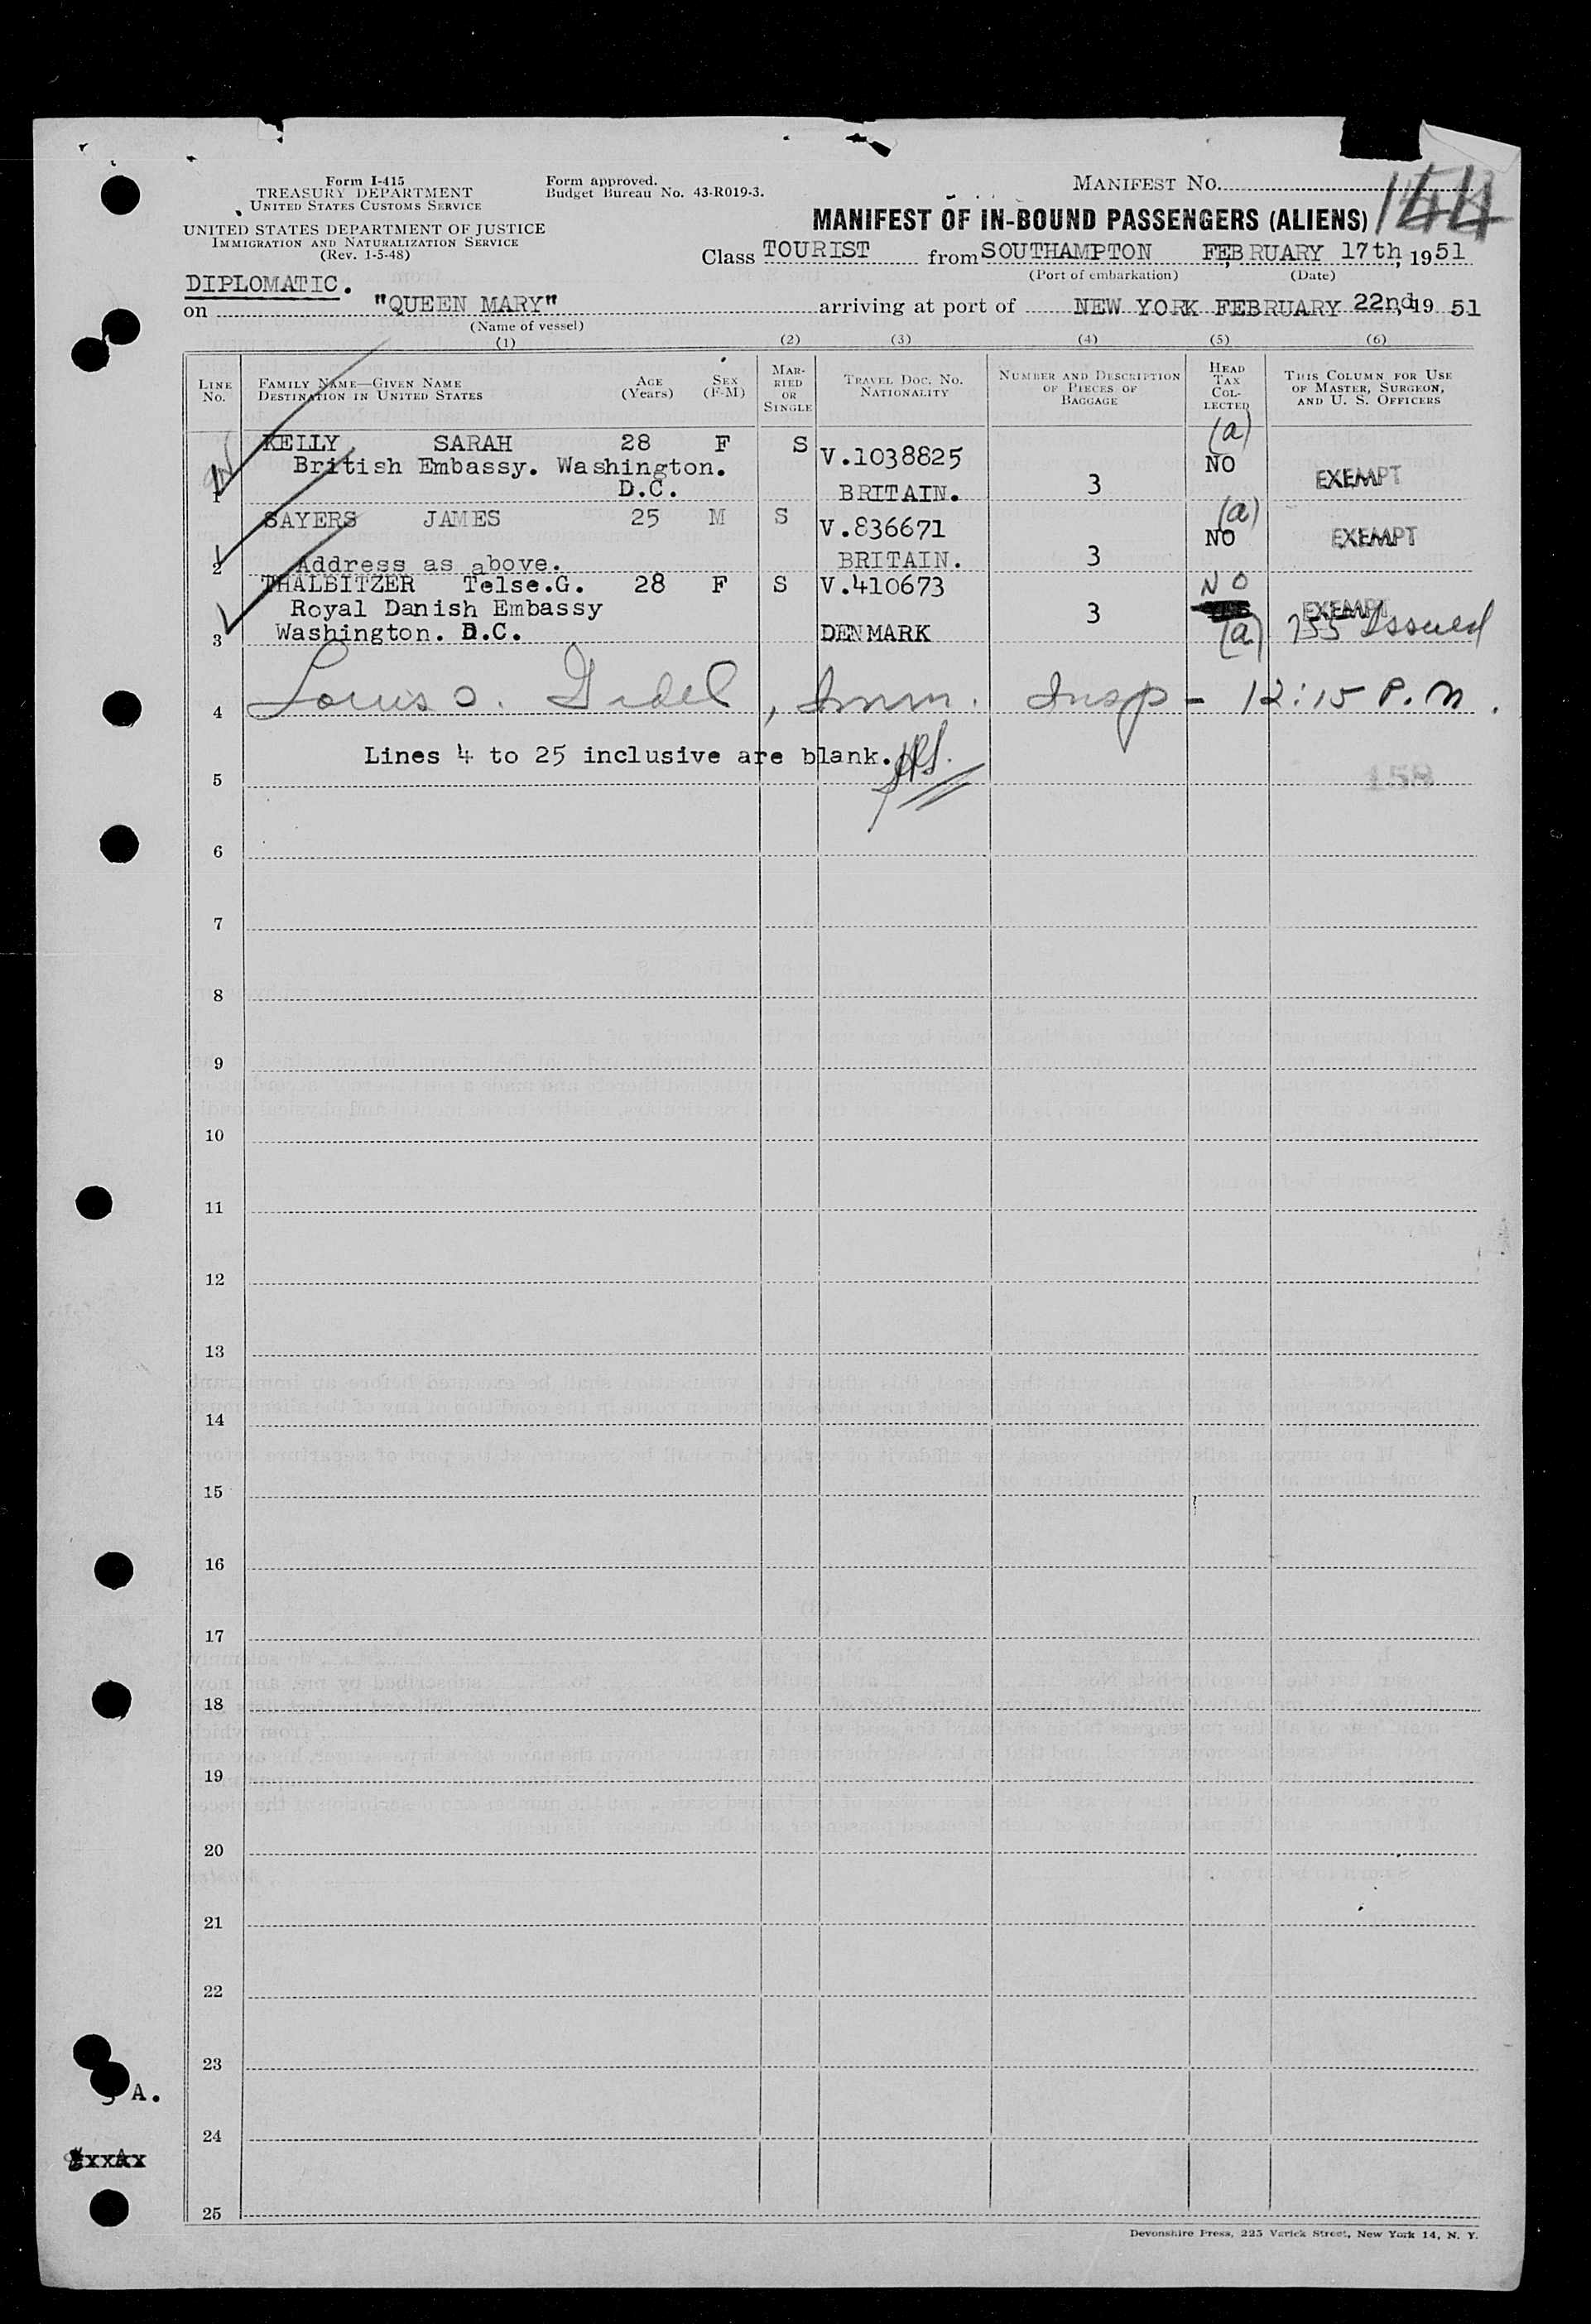 Form I-415
TREASURY DEPARTMENT
UNITED STATES CUSTOMS SERVICE
UNITED STATES DEPARTMENT OF JUSTICE
IMMIGRATION AND NATURALIZATION SERVICE
(Rev. 1-5-48)
Form approved.
Budget Bureau No. 43-R019-3.
MANIFEST NO.
144
MANIFEST OF IN-BOUND PASSENGERS (ALIENS)
Class TOURIST from SOUTHAMPTON FEBRUARY 17th, 1951
(Port of embarkation) (Date)
DIPLOMATIC.
on "QUEEN MARY" arriving at port of NEW YORK FEBRUARY 22nd, 19 51
(Name of vessel)
(1) (2) (3) (4) (5) (6)
LINE NO.
FAMILY NAME—GIVEN NAME
DESTINATION IN UNITED STATES
AGE (Years)
SEX (F-M)
MARRIED OR SINGLE
TRAVEL DOC. NO. NATIONALITY
NUMBER AND DESCRIPTION OF PIECES OF BAGGAGE
HEAD TAX COLLECTED
THIS COLUMN FOR USE OF MASTER, SURGEON, AND U. S. OFFICERS
1 KELLY SARAH 28 F S V.1038825 (a)
British Embassy. Washington. NO
D.C. BRITAIN. 3 EXEMPT
2 SAYERS JAMES 25 M S V.836671 (a)
NO EXEMPT
Address as above. BRITAIN. 3
3 THALBITZER Telse.G. 28 F S V.410673 NO
Royal Danish Embassy 3 EXEMPT
Washington. D.C. DENMARK (a) 255 Issued
4 Louis O. , Imm. Insp - 12:15 P.M.
Lines 4 to 25 inclusive are blank.
5
158
6
7
8
9
10
11
12
13
14
15
16
17
18
19
20
21
22
23
A.
24
25
Devonshire Press, 225 Varick Street, New York 14, N. Y.